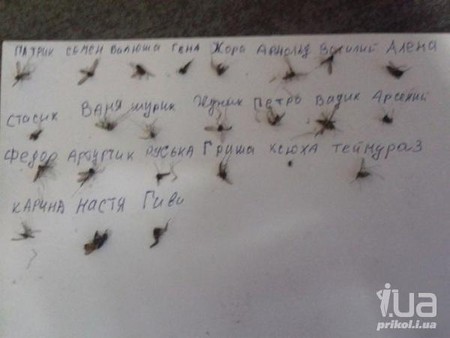 ПАТРИК СЕМЕН ВАЛЮША ГЕНА Жора АРНОЛЬД ВАСИЛИЙ АЛЕНА
СТАСИК ВАНЯ ШУРИК ПЕТРО ВАДИК АРСЕНИЙ
ФЕДОР АРТУРЧИК Гриша КСЮХА ТЕЙМУРАЗ
КАРИНА НАСТЯ Гиви
i.ua
prikol.i.ua